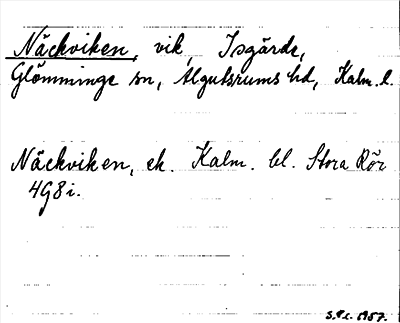 Näckviken, vik, Isgärde,
Glömminge sn, Algutsrums hd, Kalm. l.
Näckviken, ek. Kalm. bl. Stora Rör
4G8i.
1957.